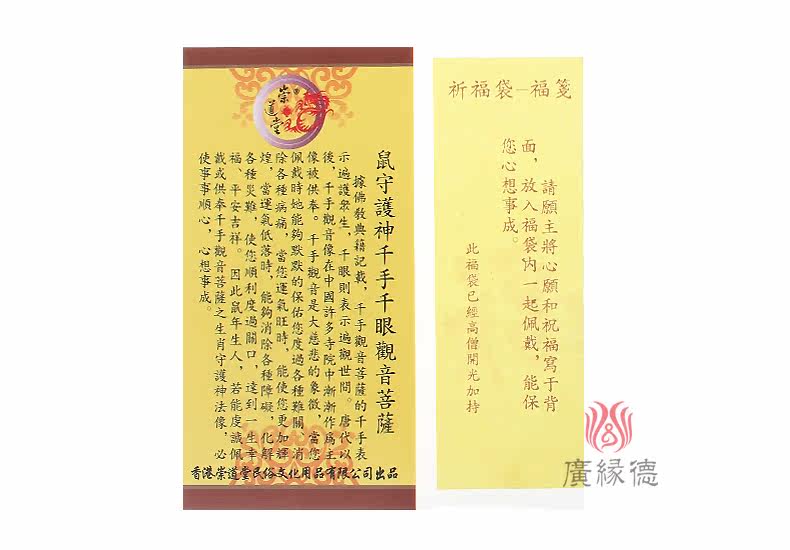 崇道堂
鼠守護神千手千眼觀音菩薩
據佛教典籍記載，千手觀音菩薩的千手表
示遍護衆生，千眼則表示遍觀世間。唐代以
後，千手觀音像在中國許多寺院中漸漸作爲主
像被供奉。千手觀音是大慈悲的象徵，當您
佩戴時她能夠默默的保佑您度過各種難關，消
除各種病痛，當您運氣旺時，能使您更加輝
煌，當運氣低落時，能夠消除各種障礙，化解
各種災難，使您順利度過關口，達到一生幸
福、平安吉祥。因此鼠年生人，若能虔誠佩
戴或供奉千手觀音菩薩之生肖守護神法像，必
使事事順心，心想事成。
香港崇道堂民俗文化用品有限公司出品
祈福袋—福箋
請願主將心願和祝福寫于背
面，放入福袋内一起佩戴，能保
您心想事成。
此福袋已經高僧開光加持
廣緣德